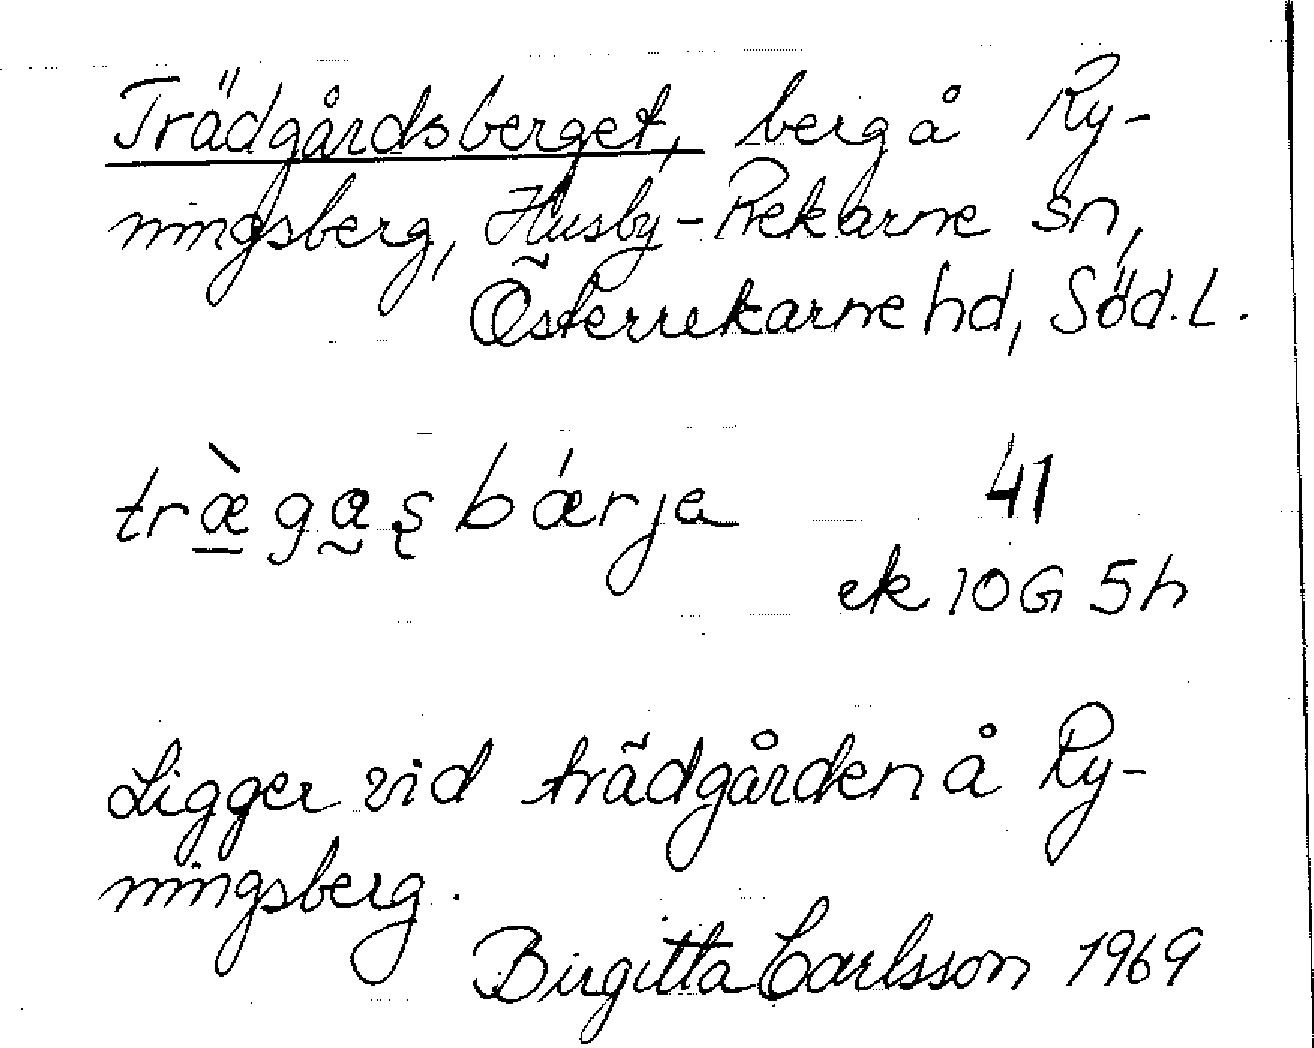 Trädgårdsberget, berg å Ry-
ningsberg, Husby-Rekarne sn,
Österrekarne hd, Söd.L.
træ̀gaʂbǽrja 41
ek 10G 5h
Ligger vid trädgården å Ry-
ningsberg.
Birgitta Carlsson 1969